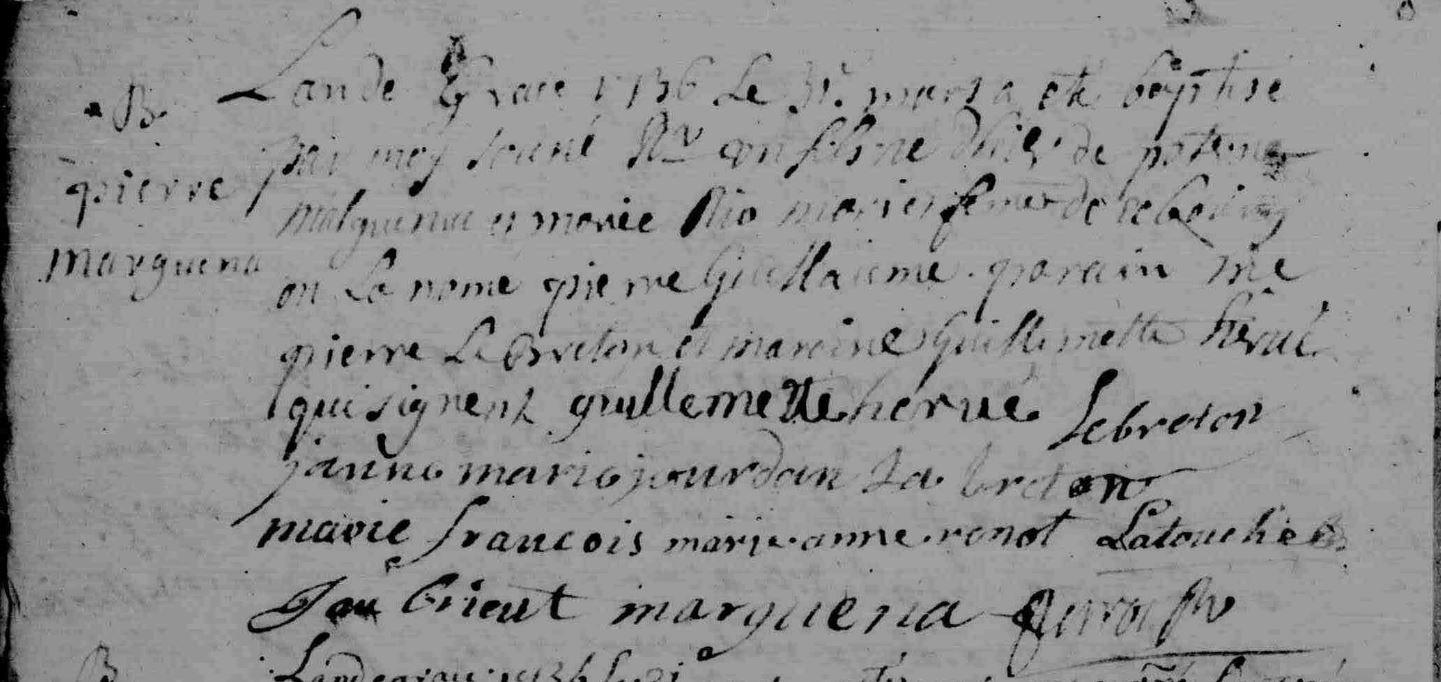 B
pierre
marguena
Lan de Grace 1736 Le 31e mars a eté baptisé
par moy sousiné Rr un fils né d'hier de
et marie Rio mariés de ce
on La nomé pierre Guillaume. parain me
pierre Le Breton et maraine Guillemette hervé
qui signent guillemette hervé Lebreton
janne marie jourdan La breton
marie francois marie anne renot Latouche
Jan Brient marguena Rr
B